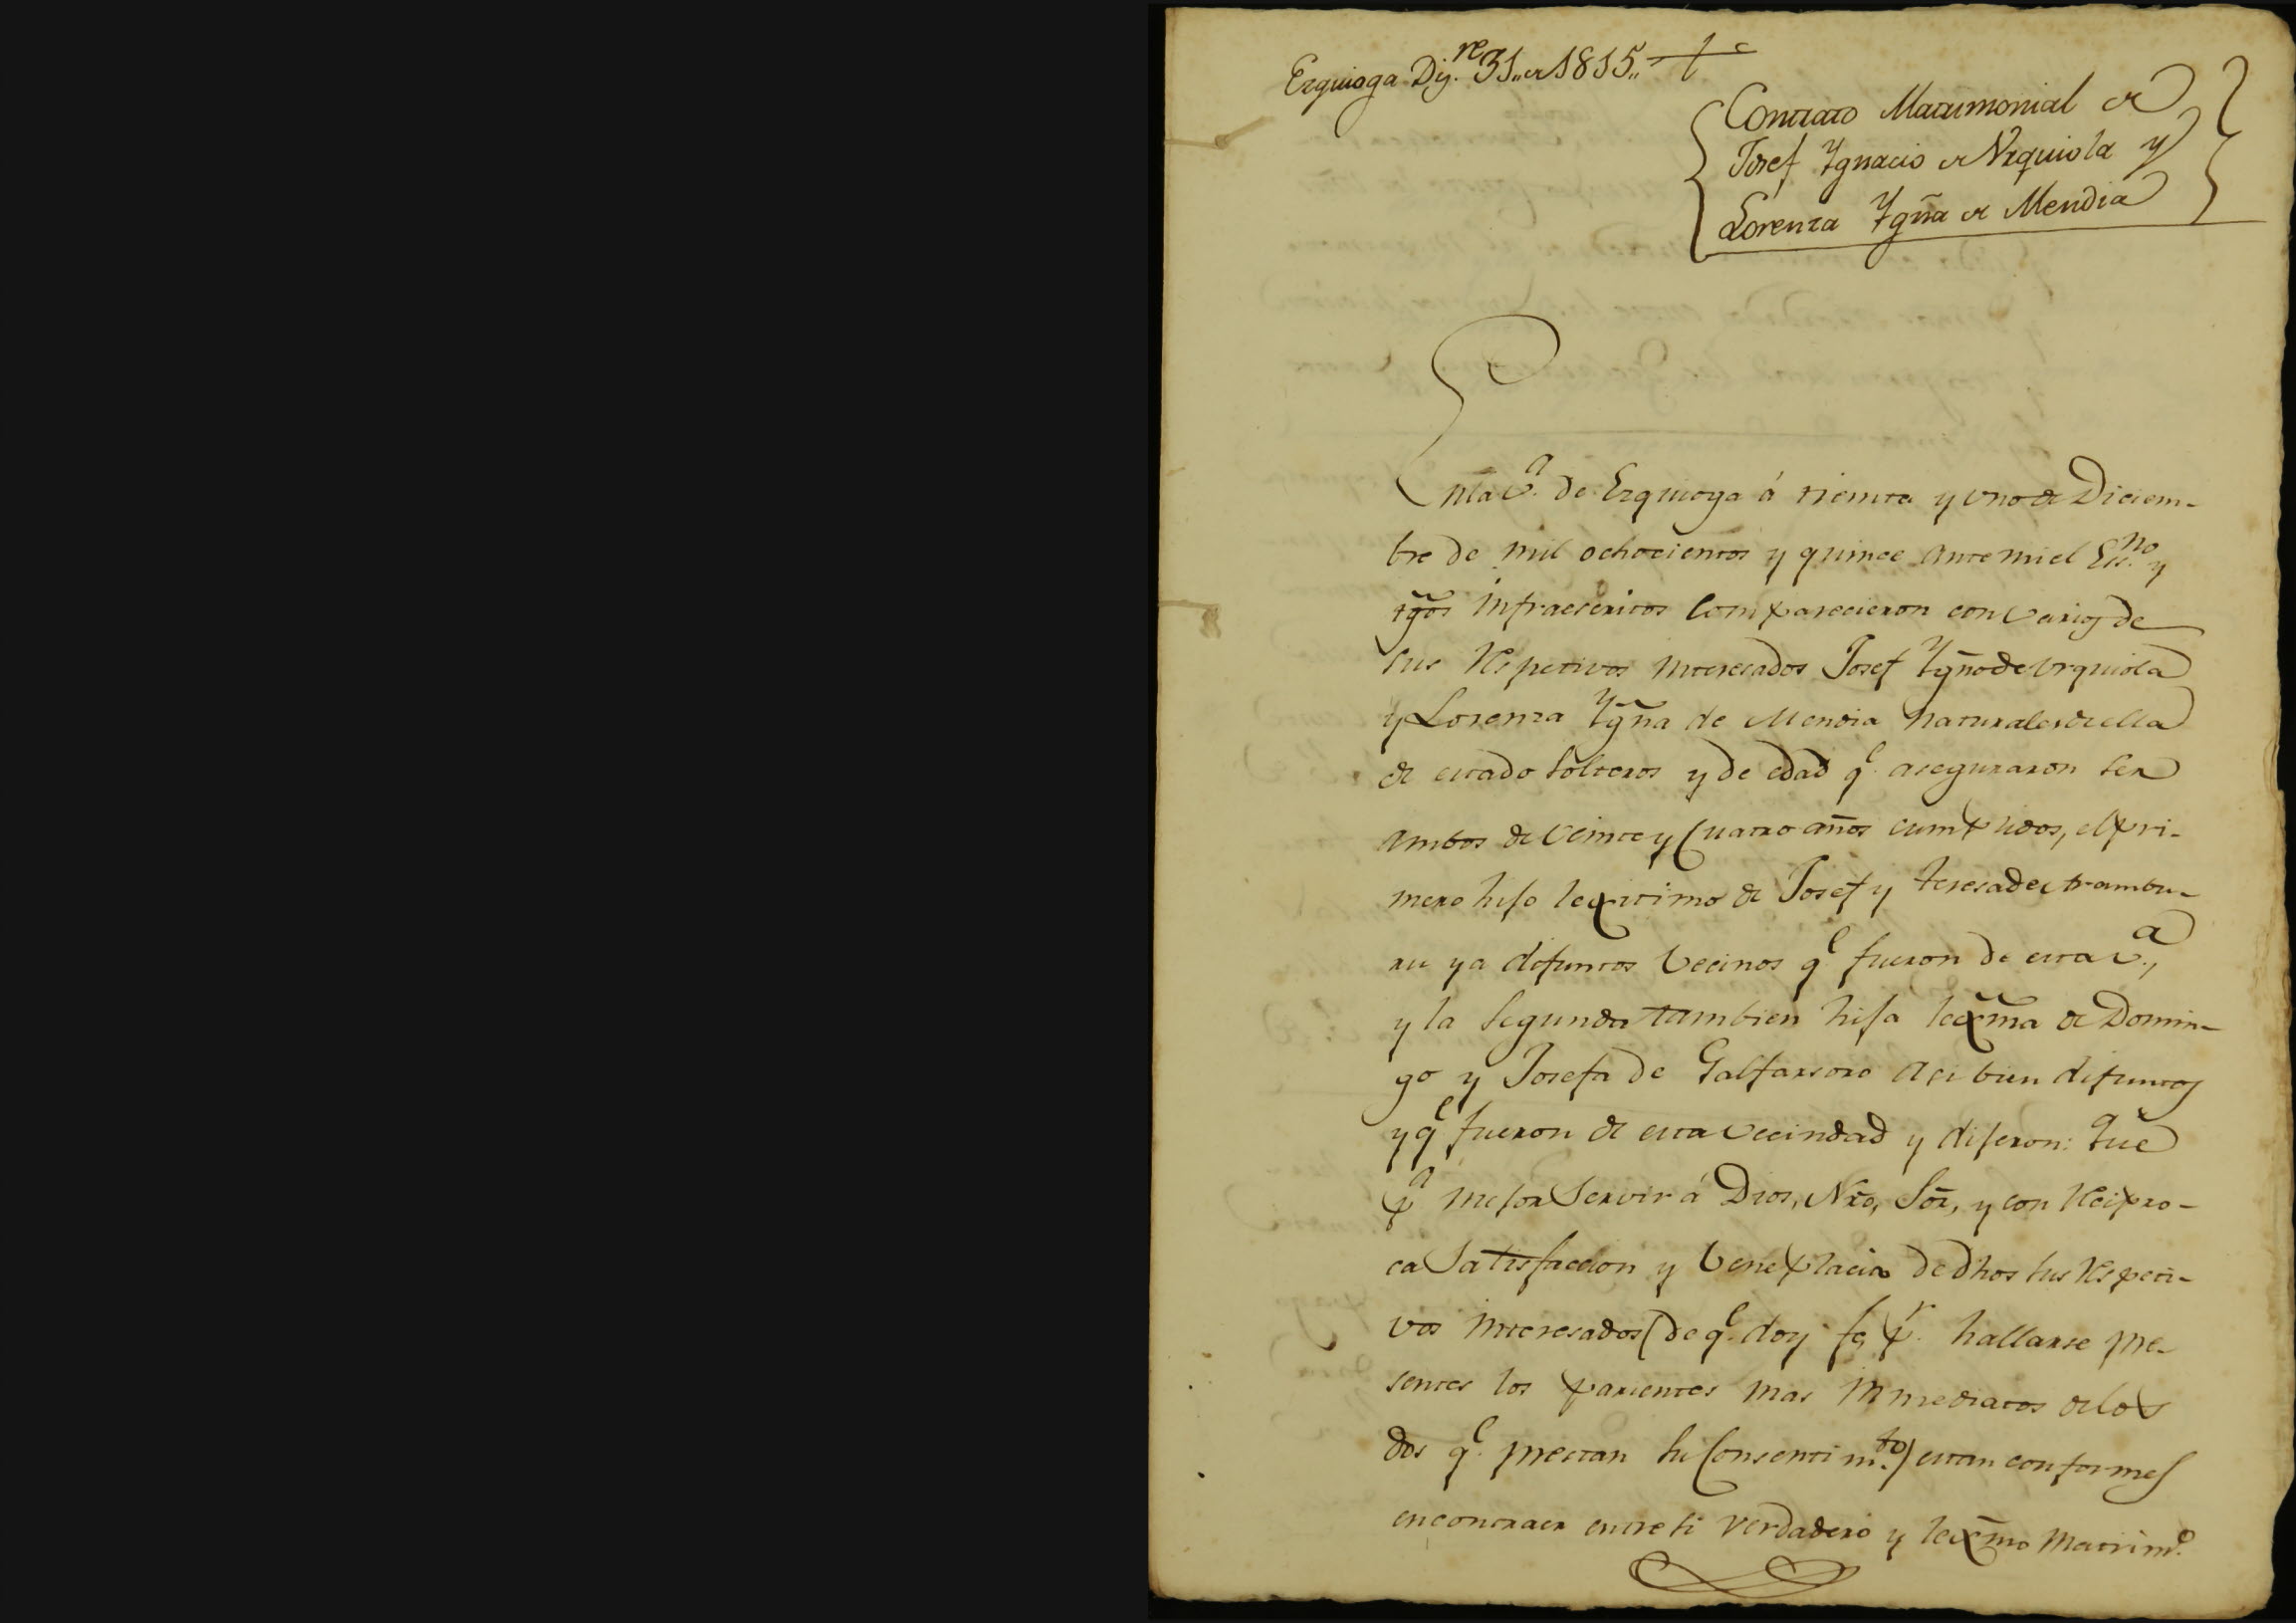 Ezquioga Diz.re 31,, de 1815,,
Contrato Matrimonial de
Josef Ygnacio de Vrquiola y
Lorenza Ygña de Mendia
En la V.a de Ezquioga á treinta y uno de Diciem-
bre de mil ochocientos y quince ante mi el Es.no y
tgõs infraescritos comparecieron con varios de
sus Respetivos interesados Josef Ygño de Vrquiola
y Lorenza Ygña de Mendia naturales de ella
de estado solteros y de edad q.e aseguraron ser
ambos de veinte y cuatro años cumplidos, el pri-
mero hijo lexitimo de Josef y Teresa de Arambu-
ru ya difuntos vecinos q.e fueron de esta v.a,
y la segunda tambien hija lexma de Domin-
go y Josefa de Galfarsoro asi bien difuntos
y q.e fueron de esta vecindad y dijeron: Que
p.a mejor servir á Dios, Nro, Sor, y con Recipro-
ca satisfaccion y beneplacio de dhos sus Respeti-
vos interesados (de q.e doy fe, p.r hallarse pre-
sentes los parientes mas inmediatos de los
dos q.e prestan su consentim.to) estan conformes
en contraer entre si verdadero y lexmo matrim.o